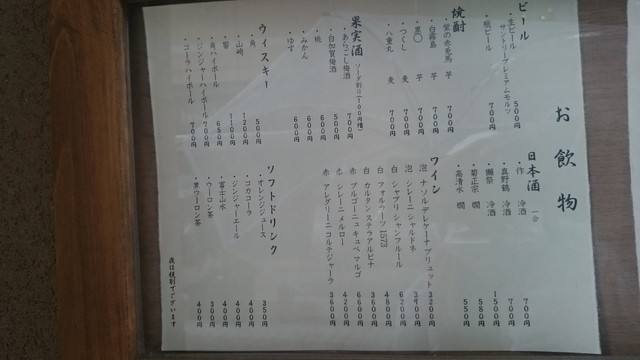 お飲物
ビール
・生ビール
サントリープレミアムモルツ 500円
・瓶ビール 700円
焼酎
・紫の赤兎馬 芋 700円
・白霧島 芋 700円
・黒〇 芋 700円
・つくし 麦 700円
・八重丸 麦 700円
果実酒 ソーダ割り(100円増)
・あらごし梅酒 700円
・白加賀梅酒 500円
・桃 600円
・みかん 600円
・ゆず 600円
ウィスキー
・角 500円
・山崎 1200円
・響 1100円
・角ハイボール 650円
・ジンジャーハイボール 700円
・コーラハイボール 700円
日本酒 一合
・作 冷酒 700円
・真野鶴 冷酒 700円
・獺祭 冷酒 1500円
・菊正宗 燗 580円
・高清水 燗 550円
ワイン
泡 ナソルデレケーナブリュット 3200円
泡 シレーニ シャルドネ 3900円
白 シャブリ シャンフルール 6200円
白 フォルターツ 1573 4800円
白 カルタン ステラアルピナ 3600円
赤 ブルゴーニュ キュベ マルゴ 6600円
赤 シレーニ メルロー 4200円
赤 アレグリーニ コルテジャーラ 3600円
ソフトドリンク
・オレンジジュース 350円
・コカコーラ 400円
・ジンジャーエール 400円
・富士山水 400円
・ウーロン茶 300円
・黒ウーロン茶 400円
表は税別でございます